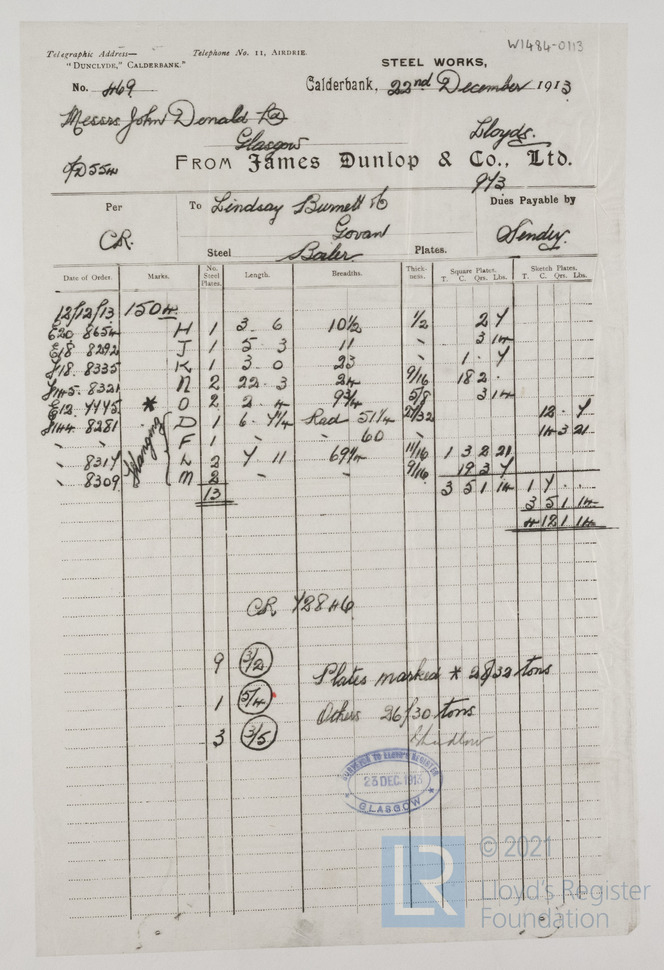 W1484-0113
Telegraphic Address—
"DUNCLYDE," CALDERBANK."
Telephone No. 11, AIRDRIE.
STEEL WORKS,
No. 469
Calderbank, 22nd December 1913
Messrs John Donald
Glasgow
Lloyds.
FROM James Dunlop & Co., Ltd.
9/3
Per
To Lindsay Burnett & Co
Dues Payable by
CR.
Govan
Steel Boiler Plates.
Date of Order. Marks. No. Steel Plates. Length. Breadths. Thick-ness. Square Plates. T. C. Qrs. Lbs. Sketch Plates. T. C. Qrs. Lbs.
12/12/13 150
8654 H 1 3 . 6 10½ 1/2 2 7
8292 J 1 5 3 11 " 3 14
8335 K 1 3 0 23 " 1 . 7
8321 N 2 22 . 3 24 9/16 18 2 .
* O 2 2 . 4 9¾ 5/8 3 14
8281 D 1 6 . 7¼ Rad 51¼ 12 . 7
" " F 1 " " 60 " 14 3 21
" 8317 L 2 7 11 69¼ 11/16 1 3 2 21
" 8309 M 2 " " 9/16 19 3 7
Flanging
13 3 5 1 14 1 7 . .
3 5 1 14
4 12 1 14
CR 72846
9 3/2
1 5/4
3 3/5
Plates marked * 28/32 tons
Others 26/30 tons
SURVEYED TO LLOYD'S REGISTER
23 DEC. 1913
* GLASGOW *
LR
© 2021
Lloyd's Register
Foundation